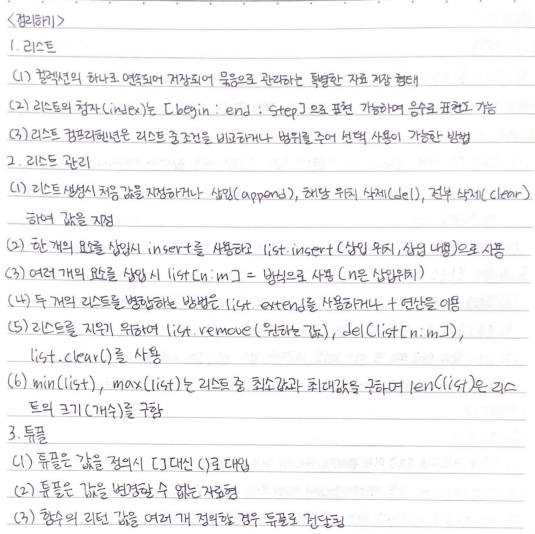 <정리하기>
1. 리스트
(1) 컬렉션의 하나로 연속되어 저장되어 묶음으로 관리하는 특별한 자료 저장 형태
(2) 리스트의 첨자(index)는 [begin : end : step]으로 표현 가능하며 음수로 표현도 가능
(3) 리스트 컴프리헨션은 리스트 중 조건을 비교하거나 범위를 주어 선택 사용이 가능한 방법
2. 리스트 관리
(1) 리스트 생성시 처음 값을 지정하거나 삽입(append), 해당 위치 삭제(del), 전부 삭제(clear)
하여 값을 지정
(2) 한 개의 요소를 삽입시 insert를 사용하고 list.insert(삽입 위치, 삽입 내용)으로 사용
(3) 여러 개의 요소를 삽입 시 list[n:m] = 방식으로 사용 (n은 삽입위치)
(4) 두 개의 리스트를 병합하는 방법은 list.extend를 사용하거나 + 연산을 이용
(5) 리스트를 지우기 위하여 list.remove(원하는 값), del(list[n:m]),
list.clear()를 사용
(6) min(list), max(list)는 리스트 중 최소값과 최대값을 구하며 len(list)은 리스
트의 크기(개수)를 구함
3. 튜플
(1) 튜플은 값을 정의시 []대신 ()로 대입
(2) 튜플은 값을 변경할 수 없는 자료형
(3) 함수의 리턴 값을 여러 개 정의할 경우 튜플로 전달됨